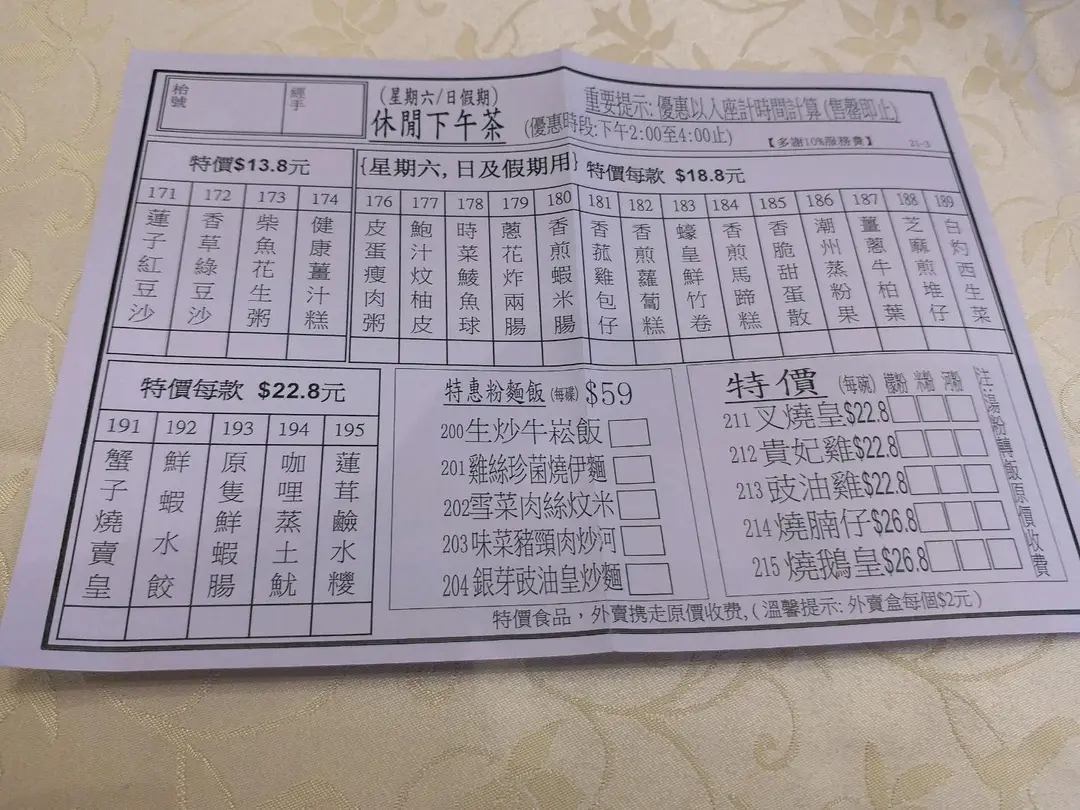 枱號
經手
(星期六/日假期)
休閒下午茶
(優惠時段:下午2:00至4:00止)
重要提示:優惠以入座計時間計算(售罄即止)
【多謝10%服務費】
21-3
特價$13.8元
171 蓮子紅豆沙
172 香草綠豆沙
173 柴魚花生粥
174 健康薑汁糕
{星期六,日及假期用} 特價每款 $18.8元
176 皮蛋瘦肉粥
177 鮑汁炆柚皮
178 時菜鯪魚球
179 蔥花炸兩腸
180 香煎蝦米腸
181 香菰雞包仔
182 香煎蘿蔔糕
183 蠔皇鮮竹卷
184 香煎馬蹄糕
185 香脆甜蛋散
186 潮州蒸粉果
187 薑蔥牛柏葉
188 芝麻煎堆仔
189 白灼西生菜
特價每款 $22.8元
191 蟹子燒賣皇
192 鮮蝦水餃
193 原隻鮮蝦腸
194 咖哩蒸土魷
195 蓮茸鹼水糭
特惠粉麵飯(每碟) $59
200生炒牛崧飯
201雞絲珍菌燒伊麵
202雪菜肉絲炆米
203味菜豬頸肉炒河
204銀芽豉油皇炒麵
特價 (每碗) 檬粉 米粉 河粉
211叉燒皇$22.8
212貴妃雞$22.8
213豉油雞$22.8
214燒腩仔$26.8
215燒鵝皇$26.8
注:湯粉轉飯原價收費
特價食品，外賣携走原價收费,(溫馨提示:外賣盒每個$2元)